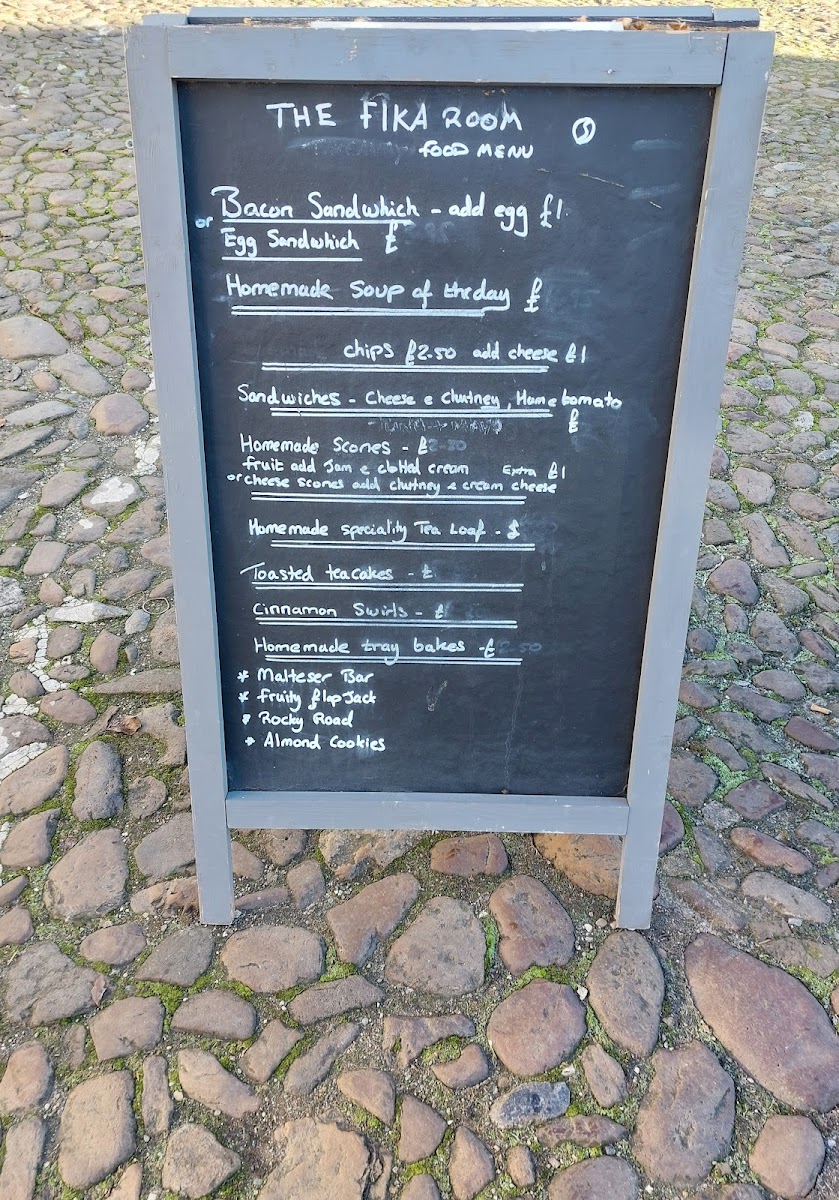 THE FIKA ROOM
FOOD MENU
Bacon Sandwhich - add egg £1
or
Egg Sandwhich £
Homemade Soup of the day £
chips £2.50 add cheese £1
Sandwiches - Cheese & Chutney, Ham & tomato
£
Homemade Scones - £
fruit add Jam & clotted cream Extra £1
or cheese scones add chutney & cream cheese
Homemade speciality Tea Loaf - £
Toasted teacakes - £
Cinnamon Swirls - £
Homemade tray bakes - £2.50
* Malteser Bar
* fruity flapJack
* Rocky Road
* Almond Cookies